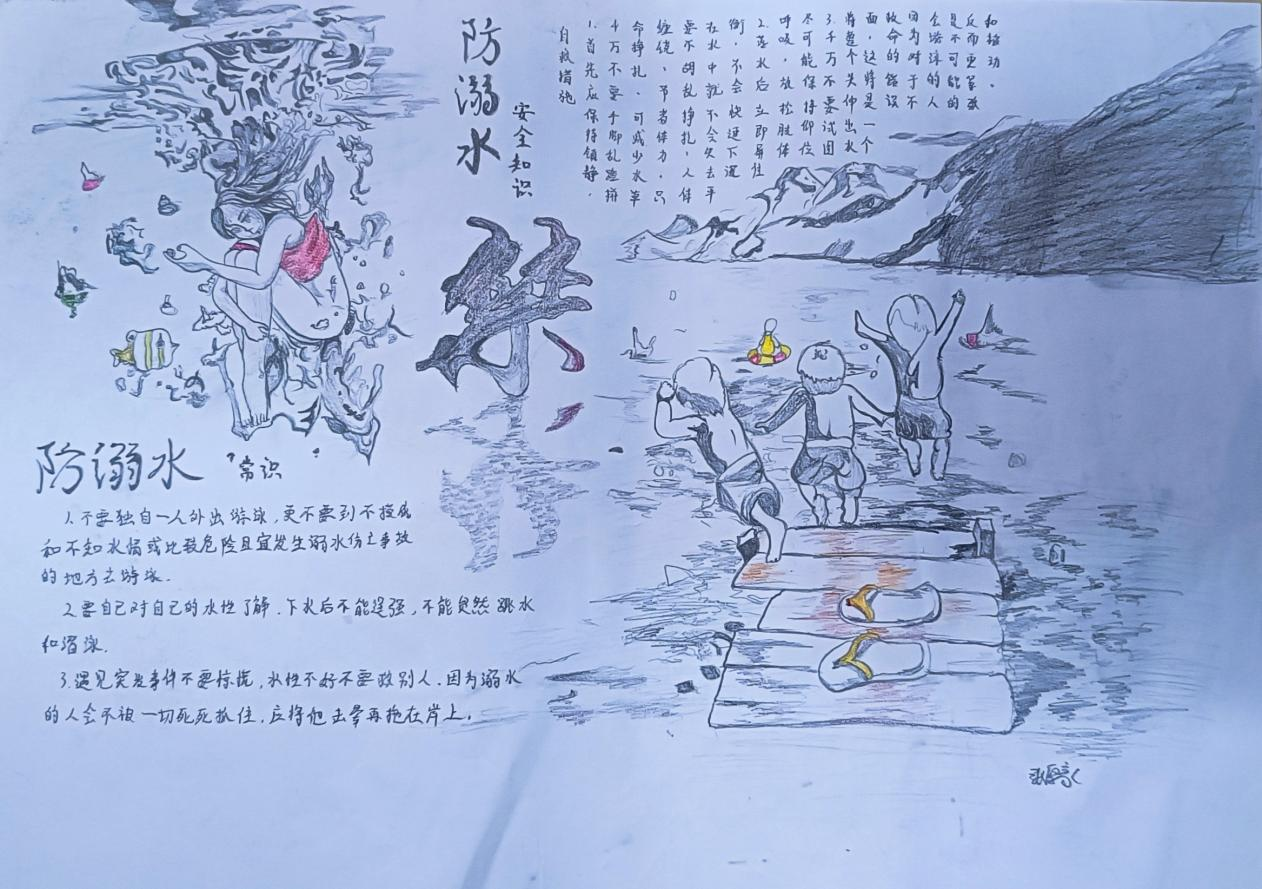 防溺水
安全知识
自救措施
1.首先应保持镇静,
千万不要手脚乱蹬拼
命挣扎,可减少水草
缠绕,节省体力。只
要不胡乱挣扎,人体
在水中就不会失去平
衡,不会快速下沉
2.落水后立即屏住
呼吸,放松肢体
尽可能保持仰位
3.千万不要试图
将整个头伸出水
面,这将是一个
致命的错误
因为对于不
会游泳的人
是不可能的
反而更紧张
防溺水
常识
1.不要独自一人外出游泳,更不要到不摸底
和不知水情或比较危险且宜发生溺水伤亡事故
的地方去游泳.
2.要自己对自己的水性了解.下水后不能逞强,不能贸然跳水
和潜泳.
3.遇见突发事件不要惊慌,水性不好不要救别人.因为溺水
的人会不被一切死死抓住.应将他击晕再拖在岸上.